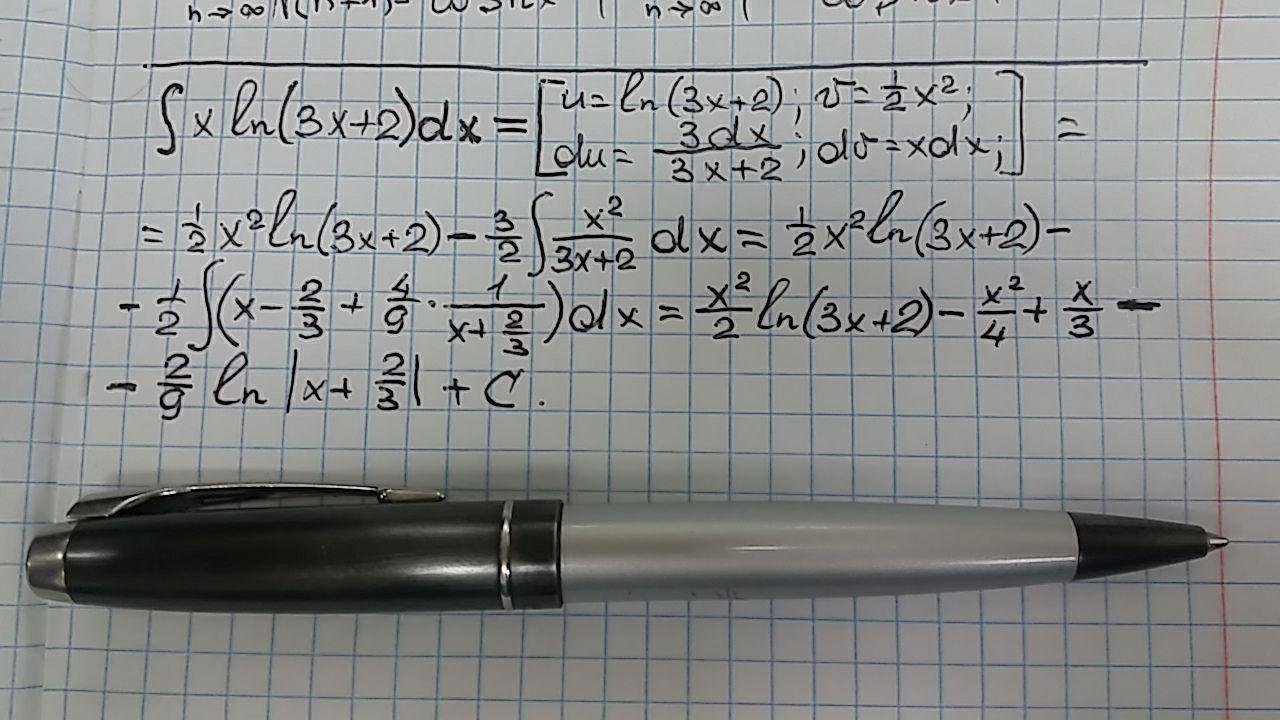 n→∞ n→∞
∫ x ln(3x+2)dx = [u = ln(3x+2); v = 1/2 x²; du = 3dx/(3x+2); dv = xdx;] =
= 1/2 x² ln(3x+2) - 3/2 ∫ x²/(3x+2) dx = 1/2 x² ln(3x+2) -
- 1/2 ∫ (x - 2/3 + 4/9 · 1/(x + 2/3)) dx = x²/2 ln(3x+2) - x²/4 + x/3 -
- 2/9 ln |x + 2/3| + C.